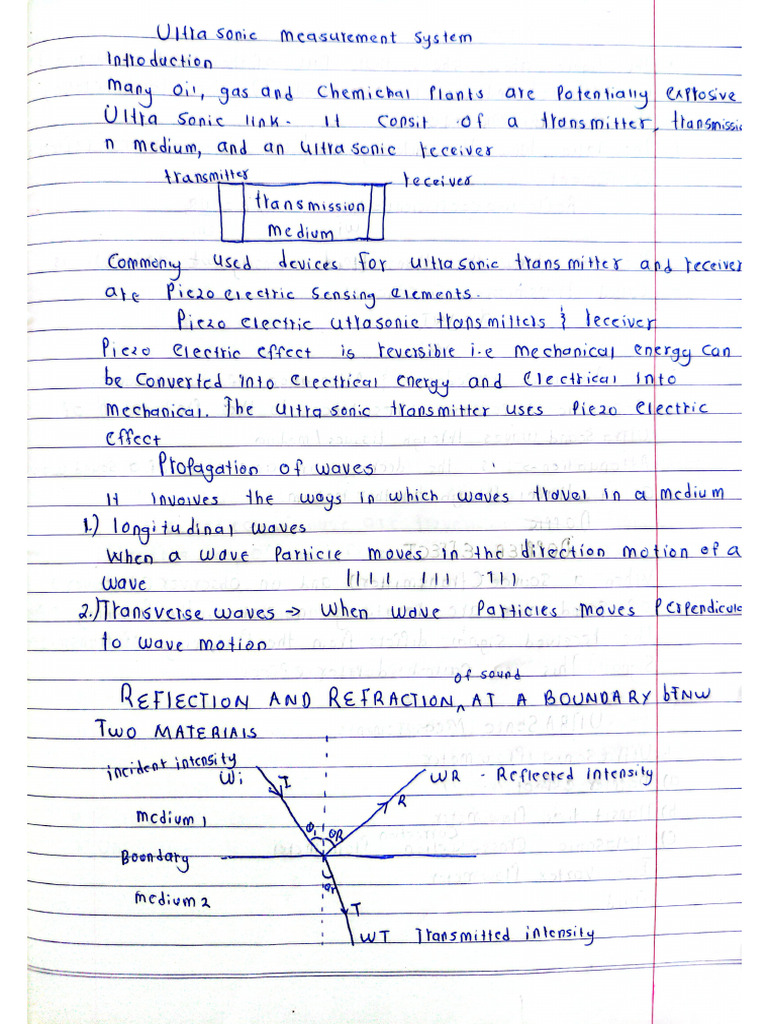 Ultra sonic measurement system
Introduction
Many oil, gas and Chemichal Plants are Potentially explosive
Ultra sonic link. It consit of a transmitter, transmissio
n medium, and an ultrasonic receiver
transmitter receiver
transmission
medium
Commonly used devices for ultrasonic transmitter and receiver
are Piezo electric sensing elements.
Piezo electric utrasonic transmitters & receiver
Piezo electric effect is reversible i.e mechanical energy can
be converted into electrical energy and Electrical into
mechanical. The ultrasonic transmitter uses Piezo electric
effect
Propagation of waves
It involves the ways in which waves travel in a medium
1.) longitudinal waves
When a wave Particle moves in the direction motion of a
wave
2.) Transverse waves → When wave Particles moves Perpendicula
to wave motion
of sound
REFLECTION AND REFRACTION ^ AT A BOUNDARY bTNW
TWO MATERIALS
incident intensity
Wi I WR - Reflected intensity
R
medium 1
θi θR
Boundary
θT
medium 2
T
WT Transmitted intensity